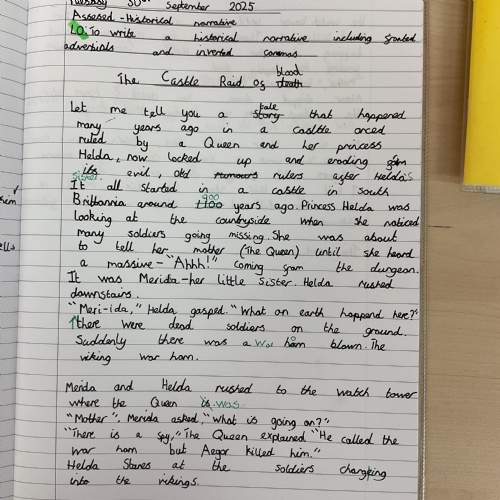 Tuesday 30th September 2025
Assessed - Historical narrative
LO: To write a historical narrative including fronted
adverbials and inverted commas
The Castle Raid of blood death
Let me tell you a story tale that happened
many years ago in a castle orced
ruled by a Queen and her princess
Helda, now locked up and eroding from
its evil, old rumours rulers after Helda's
sister.
It all started in a castle in south
Brittannia around 1100 900 years ago. Princess Helda was
looking at the countryside when she noticed
many soldiers going missing. She was about
to tell her mother (The Queen) until she heard
a massive - "Ahhh!" coming from the dungeon.
It was Merida - her little Sister. Helda rushed
downstairs.
"Meri-ida," Helda gasped. "What on earth happend here?"
there were dead soldiers on the ground.
Suddenly there was a war horn blown. The
viking war horn.
Merida and Helda rushed to the watch tower
where the Queen is was.
"Mother", Merida asked, "What is going on?"
"There is a spy," The Queen explained "He called the
war horn but Aegor killed him."
Helda Stares at the soldiers charging
into the vikings.